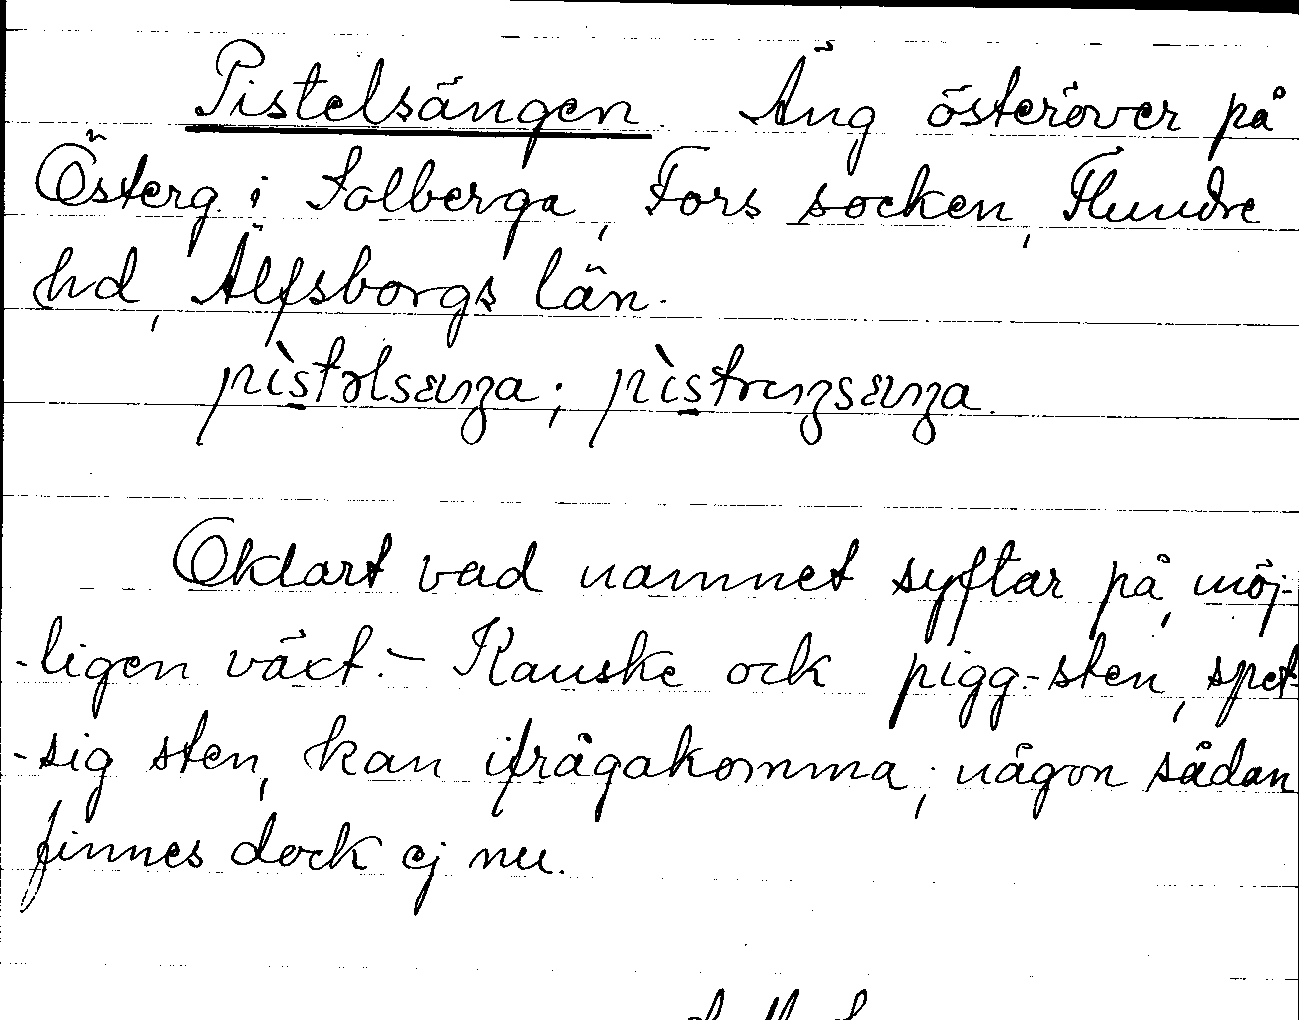 Pistelsängen. Äng österöver på
Österg. i Solberga, Fors socken, Flundre
hd, Älfsborgs län.
pìstəlsæŋa; pìstrıŋsæŋa.
Oklart vad namnet syftar på, möj-
-ligen växt. – Kanske ock pigg-sten, spet-
-sig sten, kan ifrågakomma; någon sådan
finnes dock ej nu.